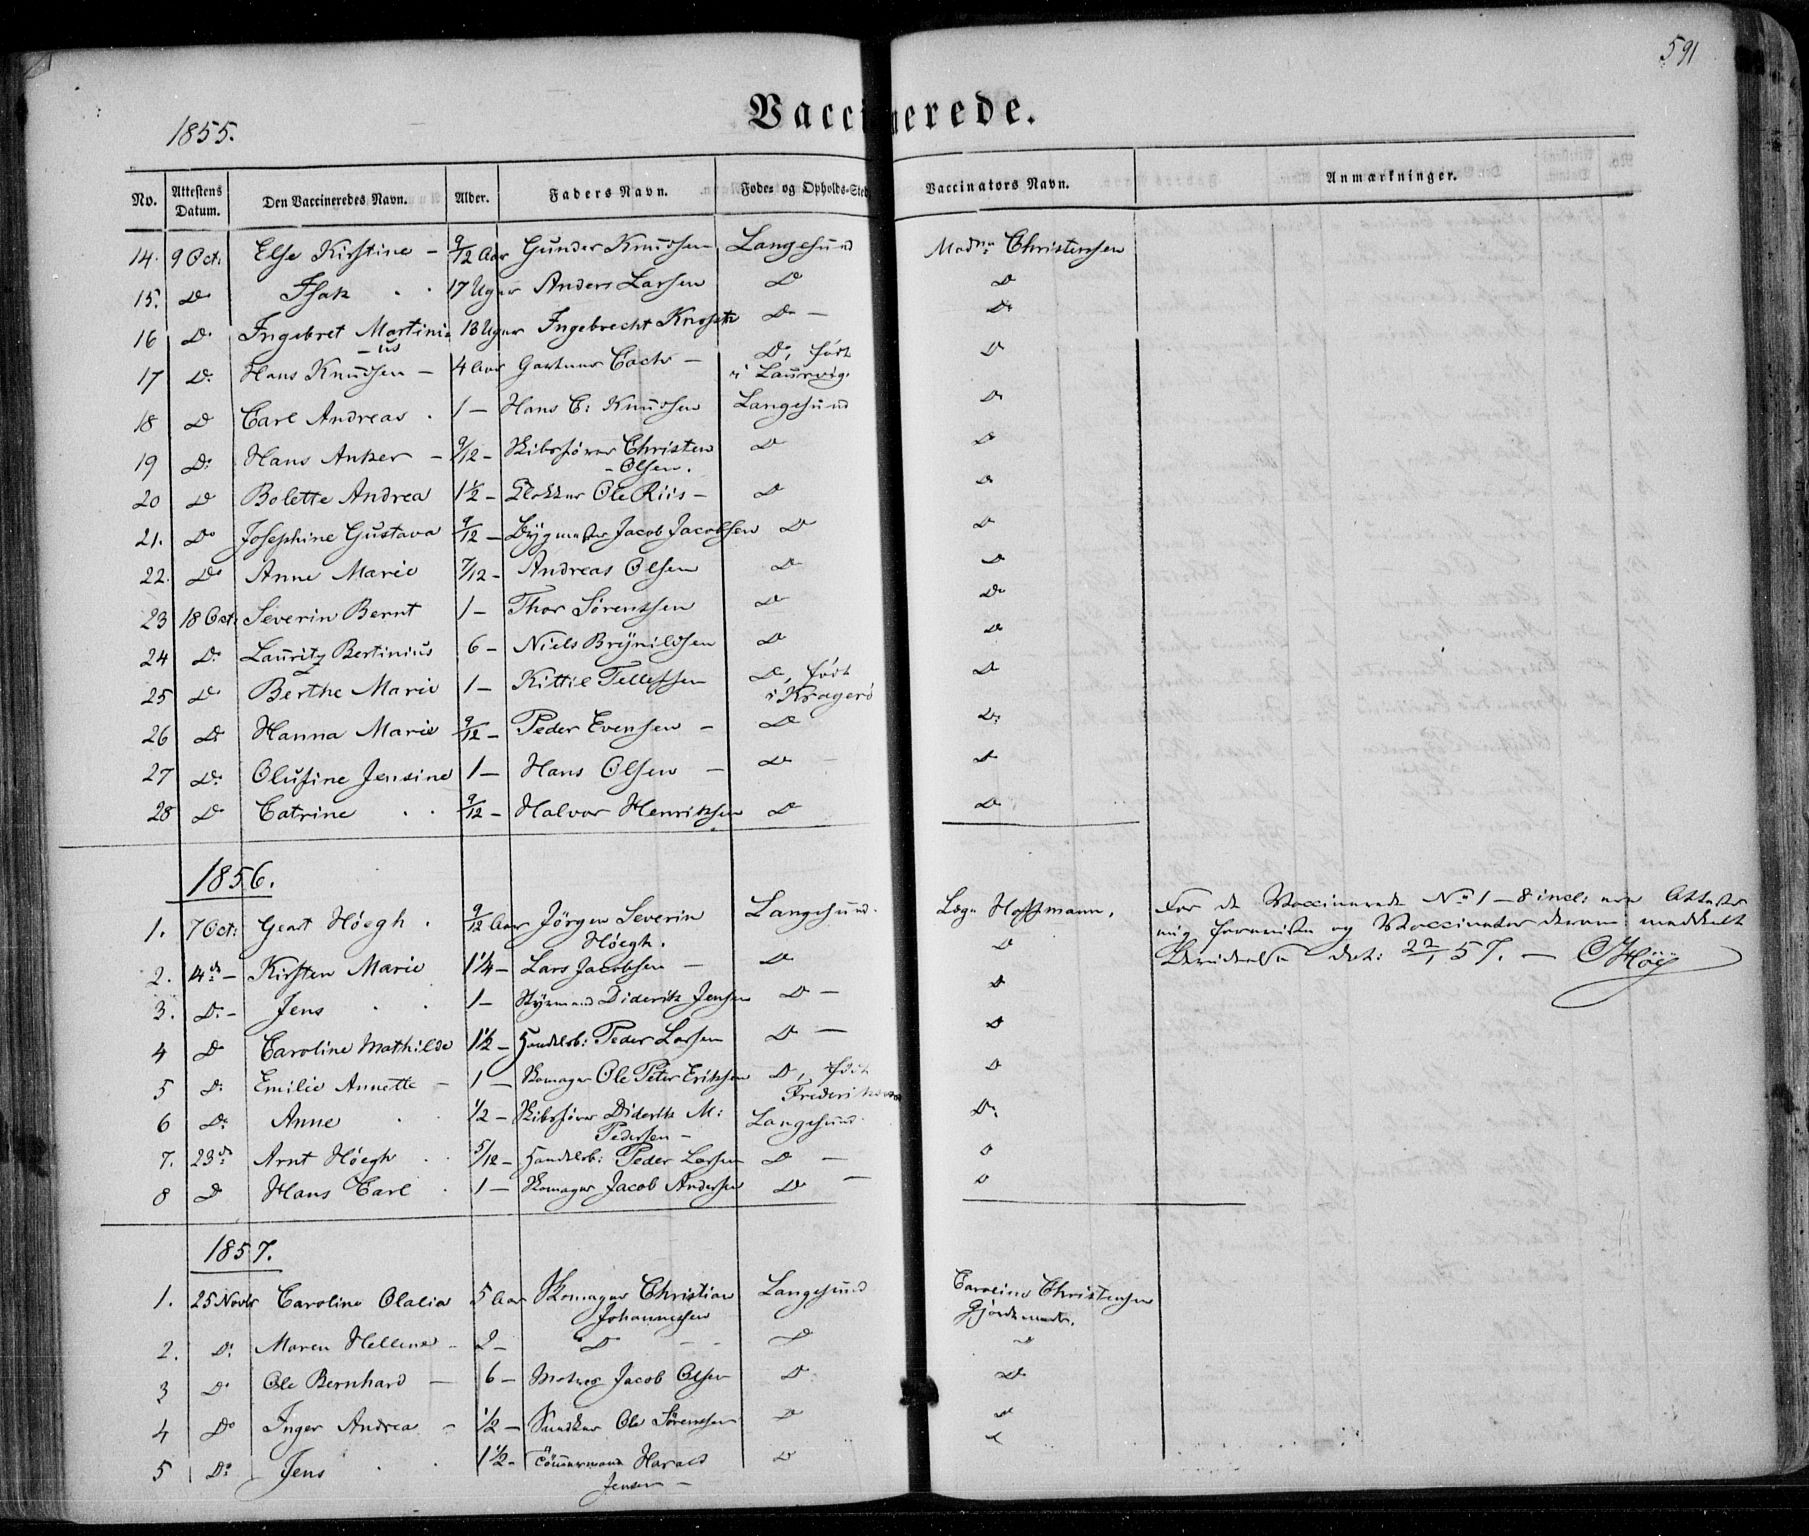 591
Vaccinerede.
1855.
No. Attestens Datum. Den Vaccineredes Navn. Alder. Faders Navn. Føde- og Opholds-Sted Vaccinators Navn. Anmærkninger.
14. 9 Oct: Else Kirstine – 9/12 Aar Gunder Knudsen Langesund Madme Christensen
15. Do Isak 17 Uger Anders Larsen Do Do
16 Do Ingebret Martinius 13 Uger Ingebrecht Do – Do
17 Do Hans Knudsen – 4 Aar Gartner – Do, født i Laurvig. Do
18 Do Carl Andreas 1 – Hans C: Knudsen Langesund Do
19 Do Hans Anker – 9/12 – Skibsfører Christen Olsen. Do Do
20 Do Bolette Andrea 1½ – Klokker Ole Riis – Do Do
21. Do Josephine Gustava 9/12 – Bygmester Jacob Jacobsen Do Do
22. Do Anne Marie 7/12 – Andreas Olsen Do Do
23 18 Oct: Severin Bernt 1 – Thor Sørensen Do Do
24 Do Lauritz Bertinius 6 – Niels Brynildsen Do Do
25 Do Berthe Marie 1 – Kittil Tellefsen Do, født i Kragerø Do
26 Do Hanna Marie 9/12 – Peder Evensen – Do Do
27 Do Olufine Jensine 1 – Hans Olsen – Do Do
28 Do Catrine 9/12 – Halvor Henriksen Do Do
1856.
1. 7 Oct: Geart Høegh. 9/12 Aar Jörgen Severin Høegh. Langesund. Læge Hoffmann. For de Vaccinerede No 1 – 8 incl: ere Attester
mig foreviste og Vaccinator derom meddeelt
2. 4 de – Kirsten Marie 1¼ – Lars Jacobsen – Do Do
dat: 22/1 57. – CHöeg
3. Do – Jens 1 – Styrmand Diderik Jensen Do – Do
4 Do Caroline Mathilde 1½ – Handelsb: Peder Larsen Do – Do
5 Do Emilie Annette – 1 – Skomager Ole Peter Eriksen Do, født Do
6 Do Anne ½ – Skibsfører Diderik M: Pedersen – Langesund Do
7. 23 de Arnt Høegh 5/12 – Handelsb: Peder Larsen Do – Do
8 Do Hans Carl 1 – Skomager Jacob Andersen Do – Do
1857.
1. 25 Novbr Caroline Olalia 5 Aar Skomager Christian Johannessen Langesund Caroline Christensen Gjordemoder.
2. Do Maren Helline 2 – Do Do Do
3 Do Ole Bernhard – 6 – Jacob Olsen Do Do
4 Do Inger Andrea – ½ – Ole Sørensen Do Do
5 Do Jens 1½ – Tömmermand Harald Jensen – Do Do